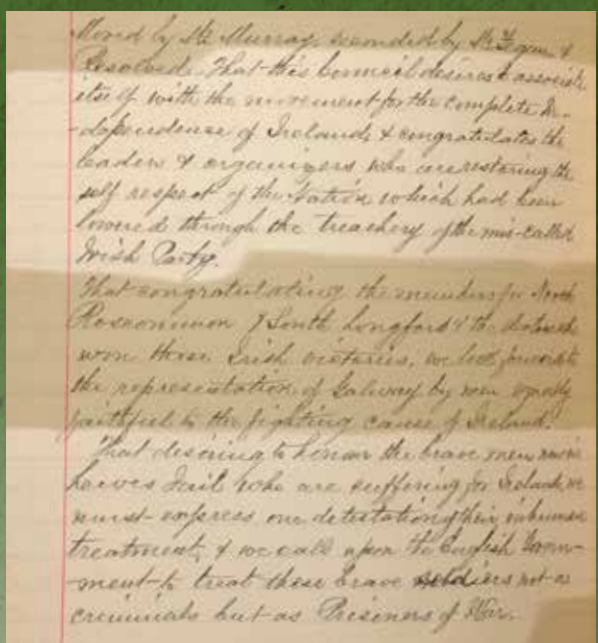 Moved by Mr Murray, seconded by Mr &
Resolved. That this Council desires to associate
itself with the movement for the complete In-
-dependence of Ireland, & congratulates the
leaders & organizers who are restoring the
self respect of the Nation which had been
lowered through the treachery of the mis-called
Irish Party.
That congratulating the members for North
Roscommon & South Longford & the
won these Irish victories, we look forward to
the representation of Galway by men equally
faithful to the fighting cause of Ireland.
That desiring to honour the brave men now in
Lewes Jail who are suffering for Ireland, we
must express our detestation of their inhuman
treatment, & we call upon the English Govern-
-ment to treat these brave soldiers not as
criminals but as Prisoners of War.